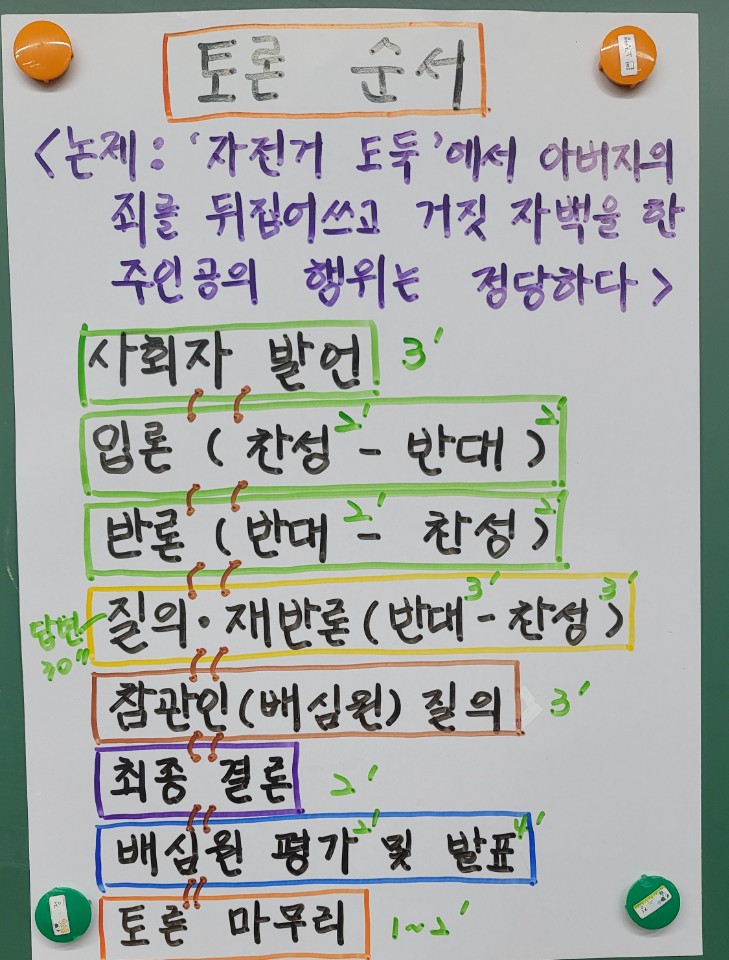 토론 순서
<논제: '자전거 도둑'에서 아버지의
죄를 뒤집어쓰고 거짓 자백을 한
주인공의 행위는 정당하다>
사회자 발언 3'
입론 (찬성 2' - 반대) 2'
반론 (반대 2' - 찬성) 2'
답변 30"
질의·재반론(반대 3' - 찬성) 3'
참관인(배심원) 질의 3'
최종 결론 2'
배심원 평가 2' 및 발표 4'
토론 마무리 1~2'